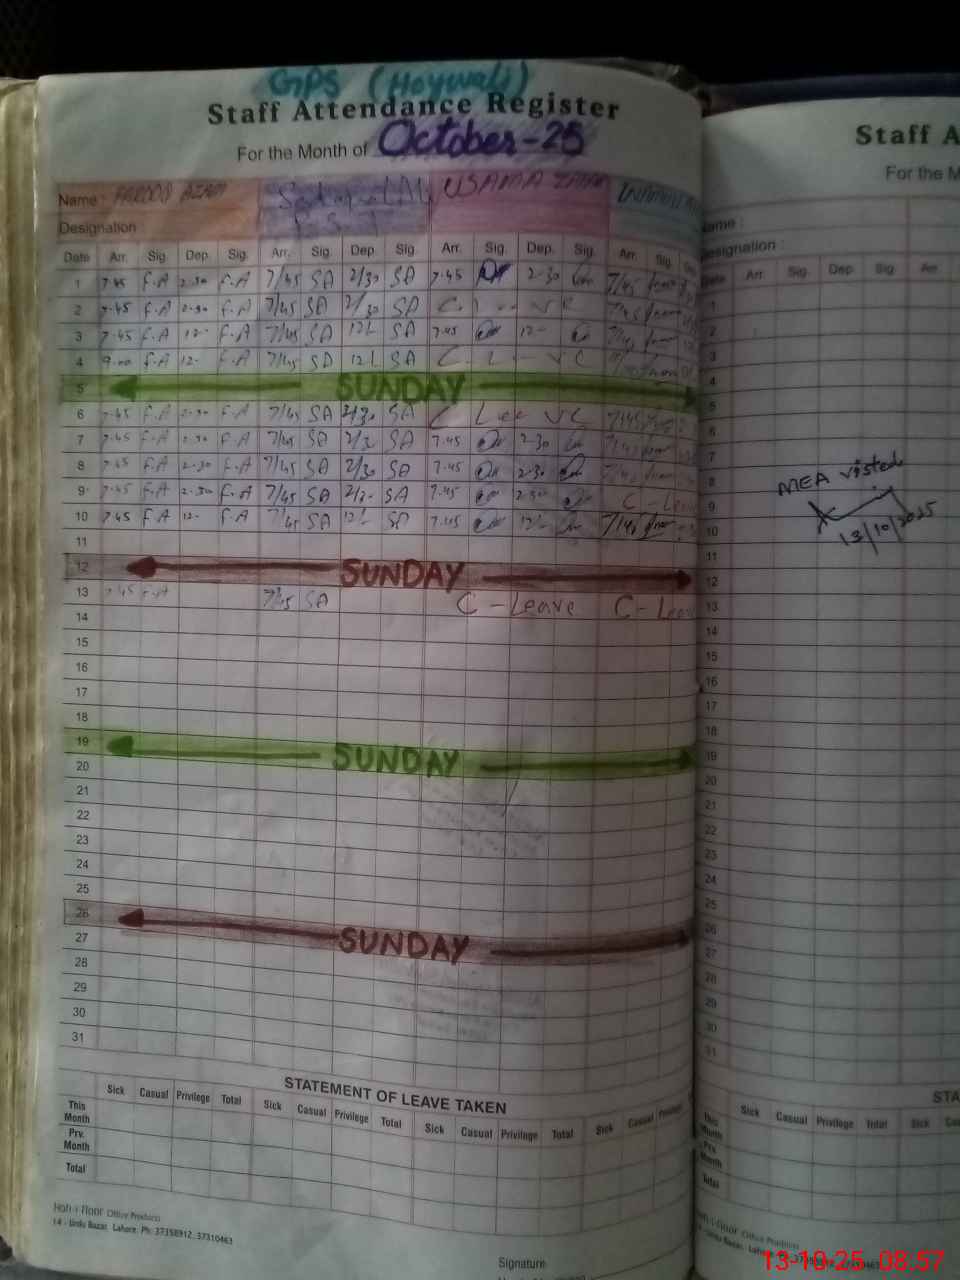 GPS (Hoywali)
Staff Attendance Register
For the Month of October-25
Name : FAROOQ AZAM USAMA
Designation : P.S.T
Date Arr. Sig. Dep. Sig. Arr. Sig. Dep. Sig. Arr. Sig. Dep. Sig. Arr. Sig.
1 7.45 F.A 2.30 F.A 7/45 SA 2/30 SA 7.45 2.30 7/45
2 7.45 F.A 2.30 F.A 7/45 SA 2/30 SA C L
3 7.45 F.A 12- F.A 7/45 SA 12/- SA 7.45 12-
4 9.00 F.A 12- F.A 7/45 SA 12/- SA C L
5 SUNDAY
6 7.45 F.A 2.30 F.A 7/45 SA 2/30 SA C 7/45
7 7.45 F.A 2.30 F.A 7/45 SA 2/30 SA 7.45 2.30 7/45
8 7.45 F.A 2.30 F.A 7/45 SA 2/30 SA 7.45 2.30 7/45
9 7.45 F.A 2.30 F.A 7/45 SA 2/30 SA 7.45 2.30 C - Leave
10 7.45 F.A 12- F.A 7/45 SA 12/- SA 7.45 12/- 7/45
11
12 SUNDAY
13 7.45 F.A 7/45 SA C - Leave C - Leave
14
15
16
17
18
19 SUNDAY
20
21
22
23
24
25
26 SUNDAY
27
28
29
30
31
STATEMENT OF LEAVE TAKEN
Sick Casual Privilege Total Sick Casual Privilege Total Sick Casual Privilege Total Sick Casual Privilege
This Month
Prv. Month
Total
Hafi-i-floor Office Products
14 - Urdu Bazar, Lahore. Ph: 37358912, 37310463
Signature
Staff A
For the M
Name :
Designation :
Date Arr. Sig. Dep. Sig. Arr.
1
2
3
4
5
6
7
8
9
10
11
12
13
14
15
16
17
18
19
20
21
22
23
24
25
26
27
28
29
30
31
MEA visted
13/10/2025
STA
Sick Casual Privilege Total Sick Ca
This Month
Prv. Month
Total
Hafi-i-floor Office Products
13-10-25 08:57